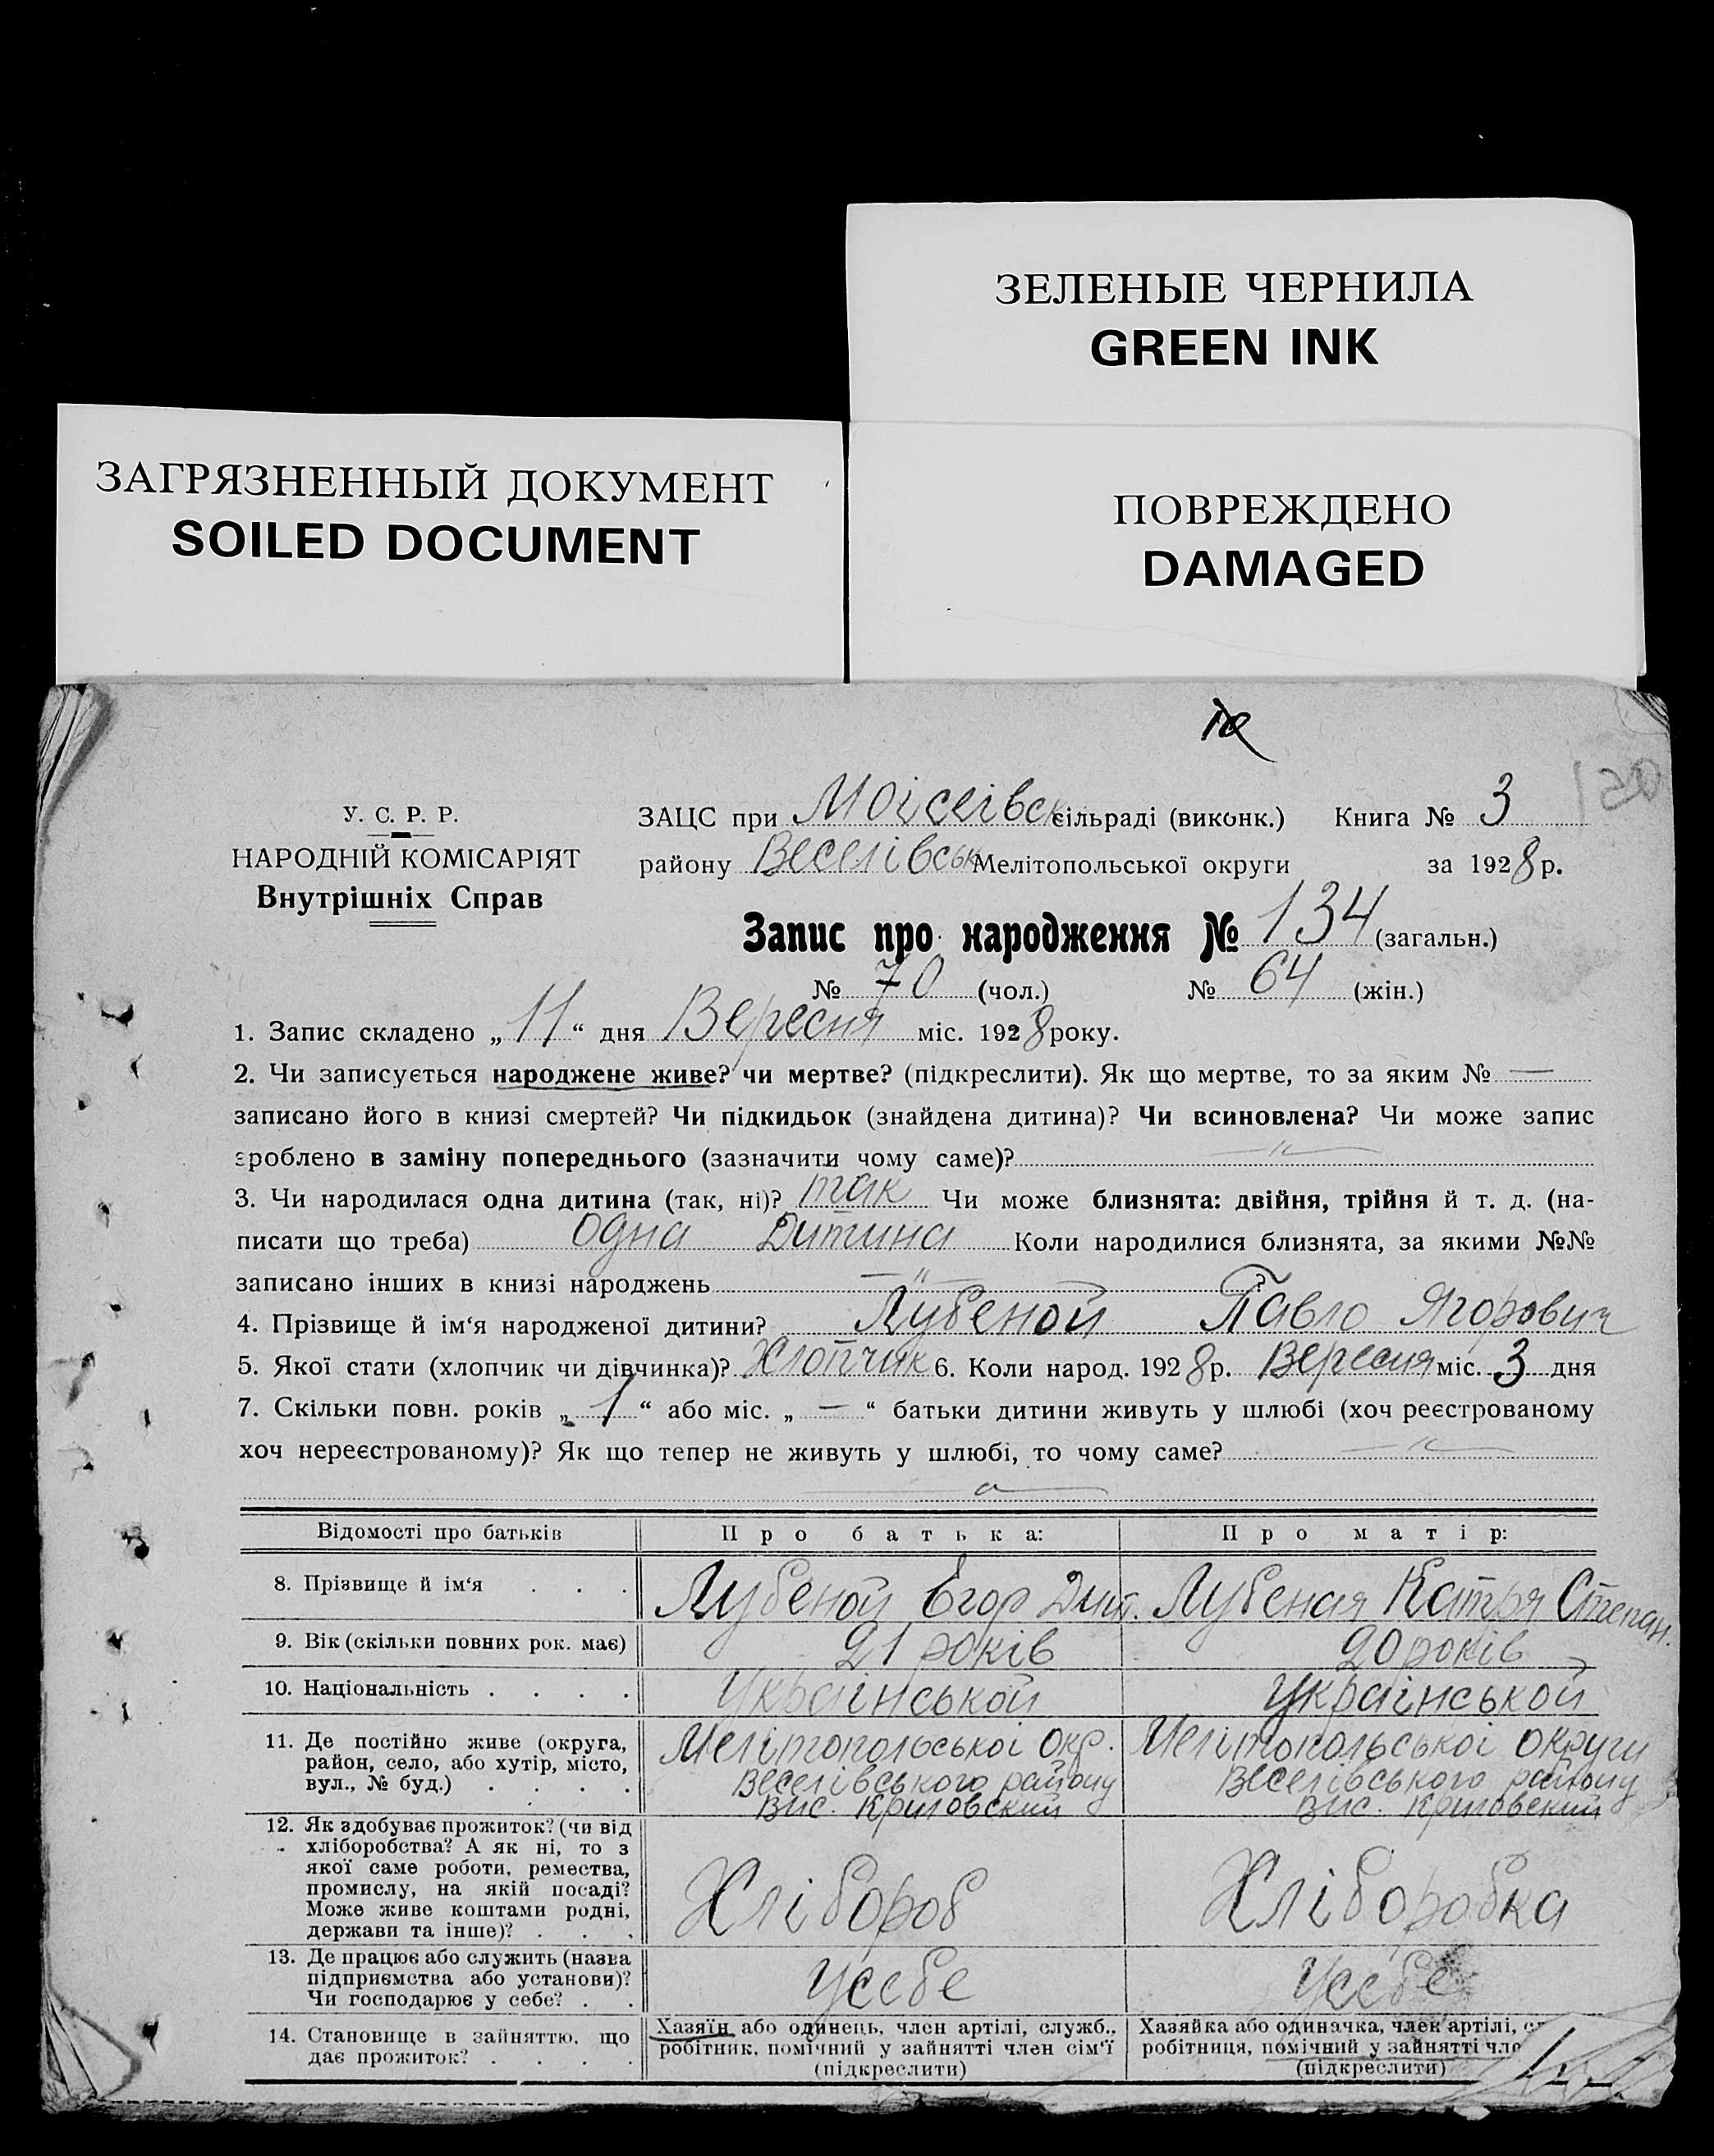 ЗЕЛЕНЫЕ ЧЕРНИЛА
GREEN INK
ЗАГРЯЗНЕННЫЙ ДОКУМЕНТ
SOILED DOCUMENT
ПОВРЕЖДЕНО
DAMAGED
У. С. Р. Р.
НАРОДНІЙ КОМІСАРІЯТ
Внутрішніх Справ
ЗАЦС при Моісеівск сільраді (виконк.) Книга № 3
району Веселівськ Мелітопольської округи за 1928 р.
Запис про народження № 134 (загальн.)
№ 70 (чол.) № 64 (жін.)
1. Запис складено „ 11 “ дня Вересня міс. 1928 року.
2. Чи записується народжене живе? чи мертве? (підкреслити). Як що мертве, то за яким № —
записано його в книзі смертей? Чи підкидьок (знайдена дитина)? Чи всиновлена? Чи може запис
зроблено в заміну попереднього (зазначити чому саме)?
3. Чи народилася одна дитина (так, ні)? так Чи може близнята: двійня, трійня й т. д. (на-
писати що треба) одна Дитина Коли народилися близнята, за якими №№
записано інших в книзі народжень — " —
4. Прізвище й ім‘я народженої дитини? Лубеной Павло Ягорович
5. Якої стати (хлопчик чи дівчинка)? Хлопчик 6. Коли народ. 1928 р. Вересня міс. 3 дня
7. Скільки повн. років „ 1 “ або міс. „ — “ батьки дитини живуть у шлюбі (хоч реєстрованому
хоч нереєстрованому)? Як що тепер не живуть у шлюбі, то чому саме?
Відомості про батьків Про батька: Про матір:
8. Прізвище й ім‘я . . . Лубеной Егор Дмит. Лубеная Катря Степан.
9. Вік (скільки повних рок. має) 21 років 20 років
10. Національність . . . . Українськой Українськой
11. Де постійно живе (округа, Мелітопольської Окр. Мелітопольської округи
район, село, або хутір, місто, Веселівського району Веселівського району
вул., № буд.) . . . . Вис.
12. Як здобуває прожиток? (чи від
хліборобства? А як ні, то з
якої саме роботи, ремества,
промислу, на якій посаді? Хлібороб Хліборобка
Може живе коштами родні,
держави та інше)? . . .
13. Де працює або служить (назва
підприємства або установи)? Усебе Усебе
Чи господарює у себе? . .
14. Становище в зайняттю, що Хазяїн або одинець, член артілі, служб., Хазяйка або одиначка, член артілі,
дає прожиток? . . . . робітник, помічний у зайнятті член сім‘ї робітниця, помічний у зайнятті
(підкреслити) (підкреслити)